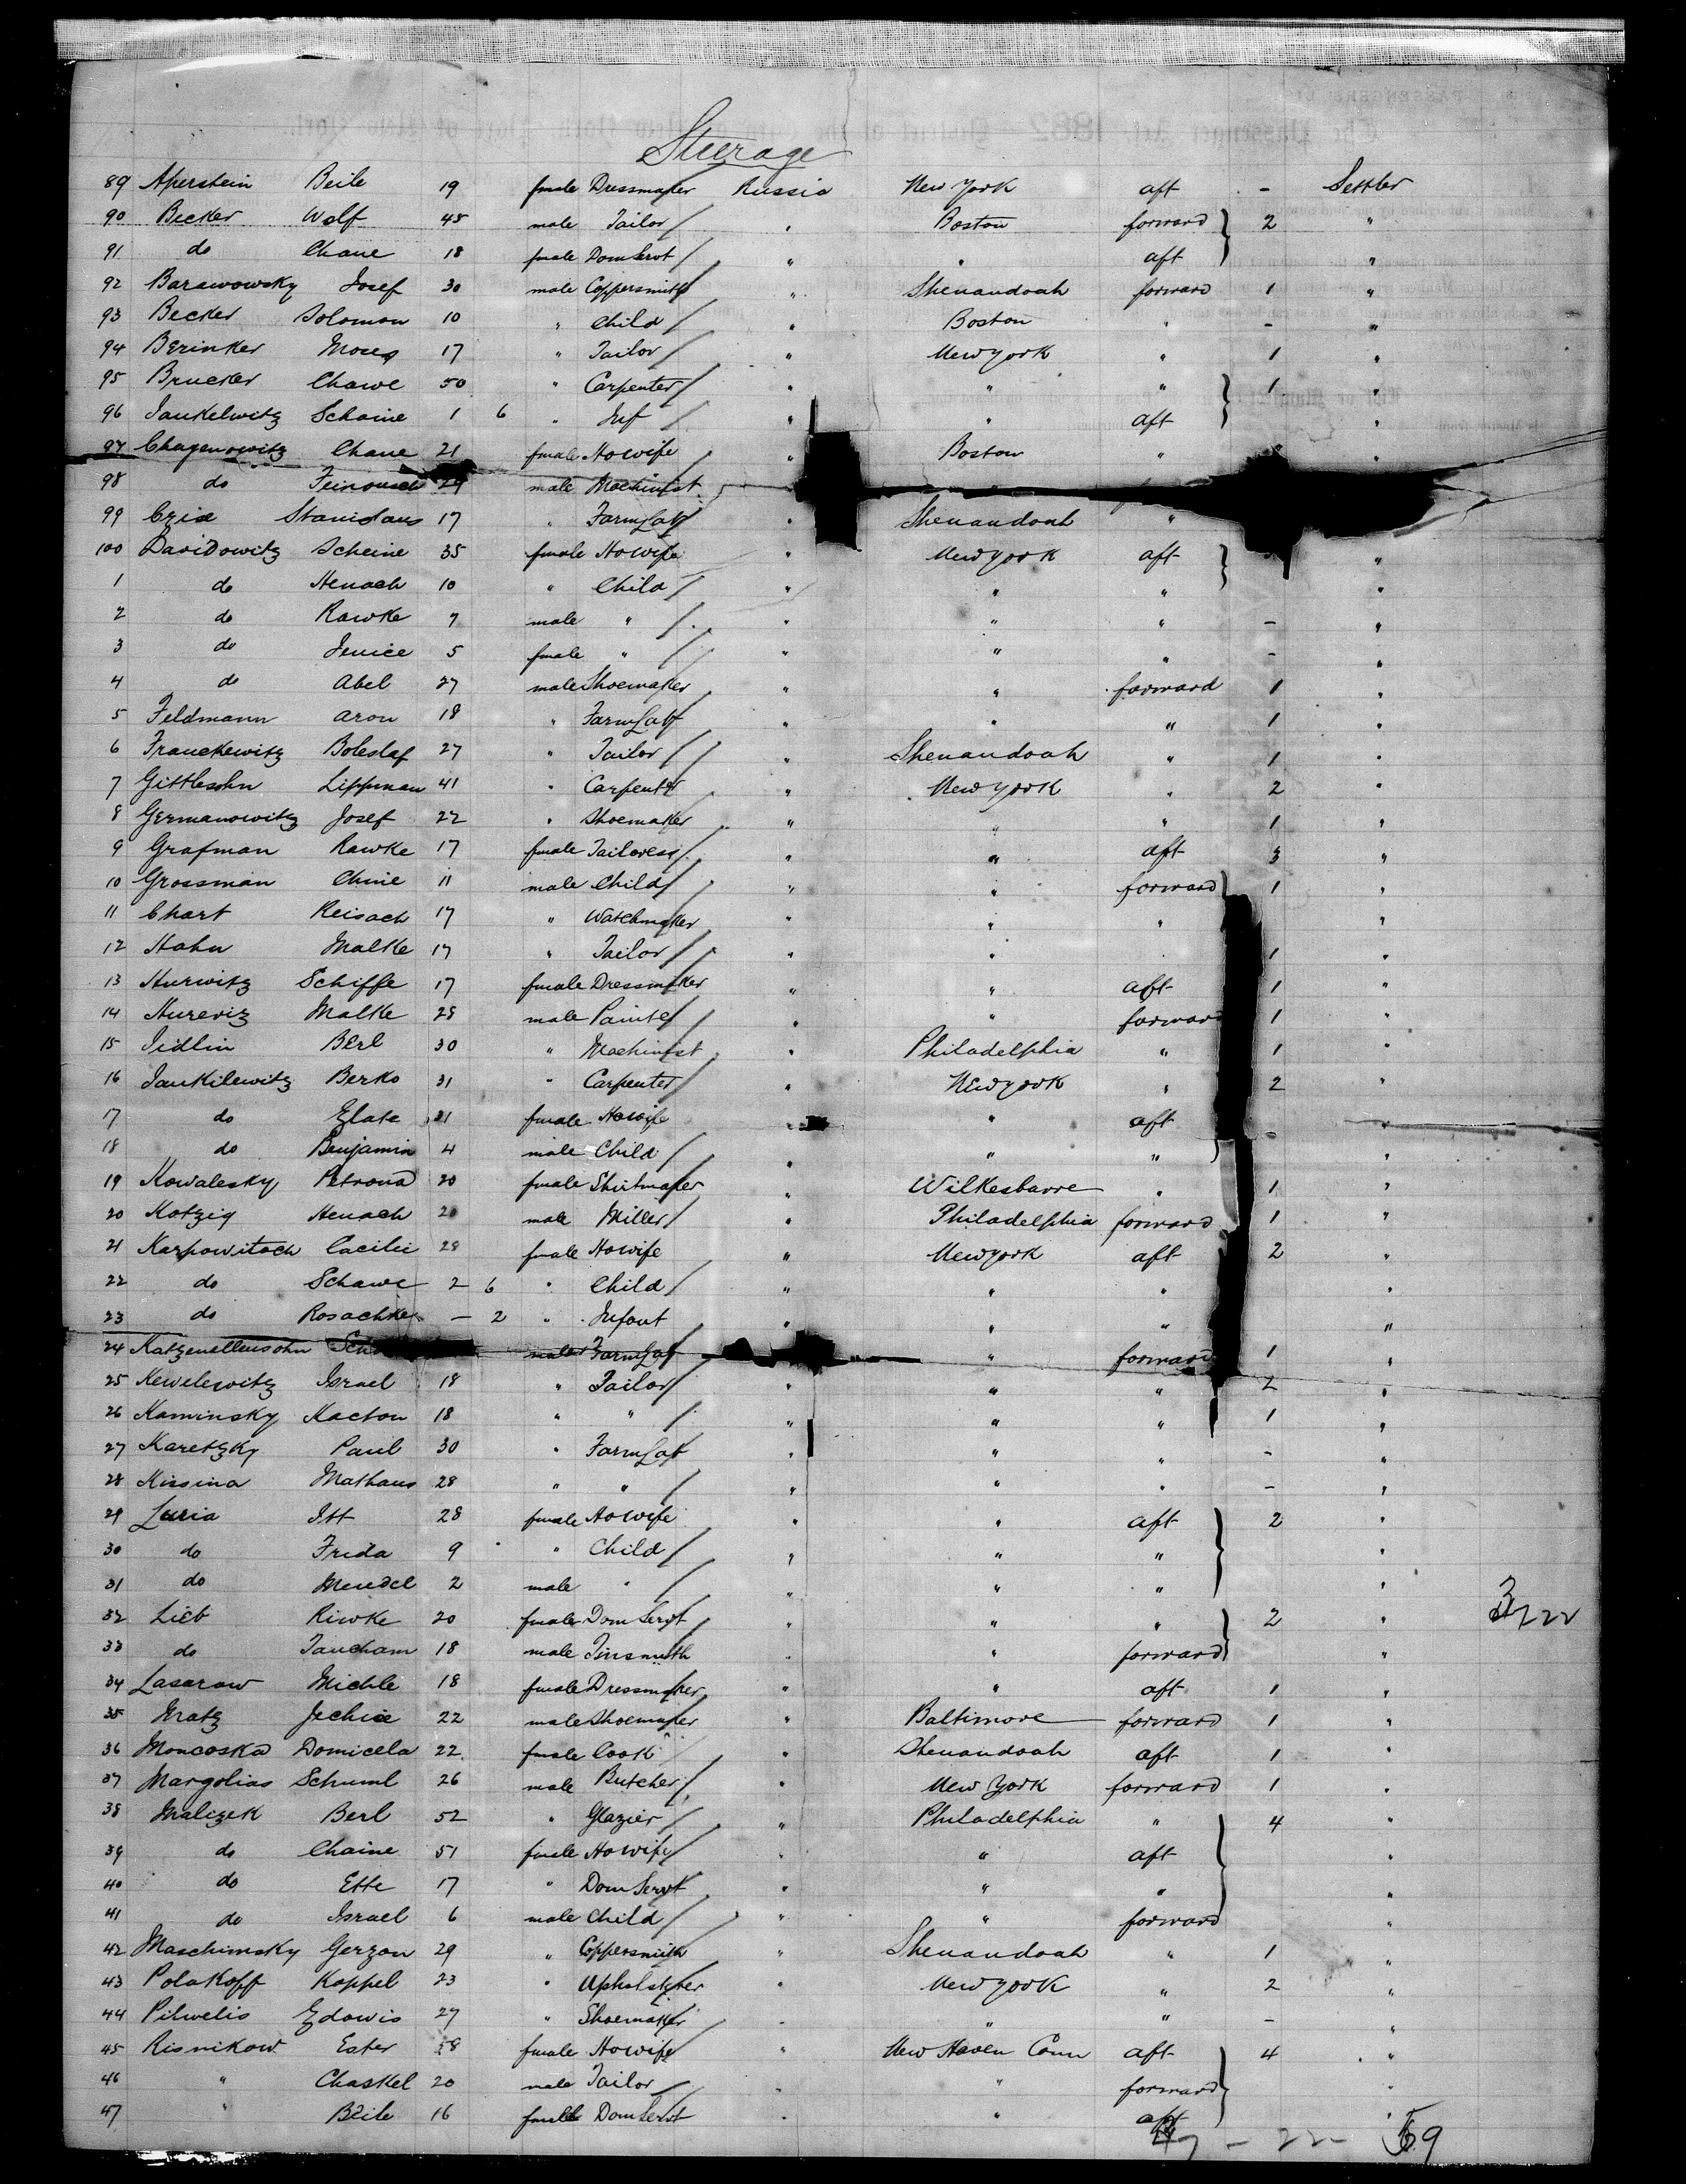 Steerage
89 Aperstein Beile 19 female Dressmaker Russia New York aft - Settler
90 Becker Wolf 45 male Tailor " Boston forward 2 "
91 do Chane 18 female Dom Servt " " aft "
92 Barawowsky Josef 30 male Coppersmith " Shenandoah forward 1 "
93 Becker Solomon 10 " Child " Boston " - "
94 Berinker Moses 17 " Tailor " New York " 1 "
95 Brucker Chawe 50 " Carpenter " " " 1 "
96 Jankelwitz Schaine 1 6 " Inf " " aft "
97 Chagenowitz Chane 21 female Howife " Boston " "
98 do 29 male Machinist
99 Stanislaus 17 " Farm Lab " Shenandoah "
100 Davidowitz Scheine 35 female Howife " New York aft "
1 do Henach 10 " Child " " " "
2 do Rawke 7 male " " " " - "
3 do Jenice 5 female " " " " - "
4 do Abel 27 male Shoemaker " " forward 1 "
5 Feldmann Aron 18 " Farm Lab " " " 1 "
6 Franckewitz Boleslaf 27 " Tailor " Shenandoah " 1 "
7 Gittlesohn Lippman 41 " Carpenter " New York " 2 "
8 Germanowitz Josef 22 " Shoemaker " " " 1 "
9 Grafman Rawke 17 female Tailoress " " aft 3 "
10 Grossman Chine 11 male Child " " forward 1 "
11 Chart Reisach 17 " Watchmaker " " " "
12 Hahn Malke 17 " Tailor " " " 1 "
13 Hurwitz Schiffe 17 female Dressmaker " " aft 1 "
14 Hureviz Malke 28 male Painter " " forward 1 "
15 Jidlin Berl 30 " Machinist " Philadelphia " 1 "
16 Jankilewitz Berko 31 " Carpenter " New York " 2 "
17 do Zlate 31 female Howife " " aft "
18 do Benjamin 4 male Child " " " - "
19 Kowalesky Petrona 20 female Shirtmaker " Wilkesbarre " 1 "
20 Kotzig Henach 20 male Miller " Philadelphia forward 1 "
21 Karpowitsch Cacilie 28 female Howife " New York aft 2 "
22 do Schawe 2 6 " Child " " " "
23 do Rosachke - 2 " Infant " " " "
24 Katzenellensohn male Farm Lab " forward 1 "
25 Kewelewitz Israel 18 " Tailor " " " 2 "
26 Kaminsky Kacton 18 " " " " " 1 "
27 Karetzky Paul 30 " Farm Lab " " " - "
28 Kissina Mathaus 28 " " " " " - "
29 Luria Itt 28 female Howife " " aft 2 "
30 do Frida 9 " Child " " " "
31 do Mendel 2 male " " " " "
32 Lieb Riwke 20 female Dom Servt " " " 2 "
33 do Tancham 18 male Tinsmith " " forward "
34 Lasarow Michle 18 female Dressmaker " " aft 1 "
35 Matz Jechiel 22 male Shoemaker " Baltimore forward 1 "
36 Moncoska Domicela 22 female Cook " Shenandoah aft 1 "
37 Margolias Schuml 26 male Butcher " New York forward 1 "
38 Malczek Berl 52 " Glazier " Philadelphia " 4 "
39 do Chaine 51 female Howife " " aft "
40 do Ette 17 " Dom Servt " " " "
41 do Israel 6 male Child " " forward "
42 Maschimsky Gerzon 29 " Coppersmith " Shenandoah " 1 "
43 Polakoff Koppel 23 " Upholsterer " New York " 2 "
44 Pilwelis Zdowis 27 " Shoemaker " " " - "
45 Risnikow Ester 38 female Howife " New Haven Conn aft 4 "
46 " Chaskel 20 male Tailor " " forward "
47 " Beile 16 female Dom Servt " " aft "
- 22 - 59